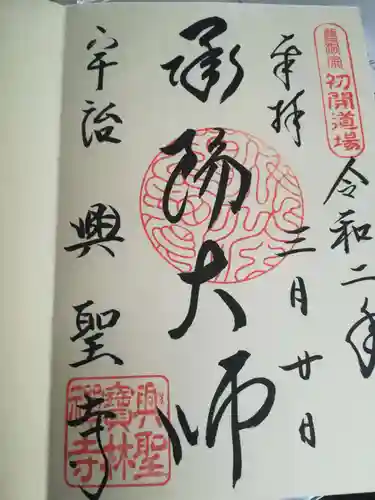 曹洞宗
初開道場
奉拝
令和二年
三月廿日
承陽大師
宇治
興聖寺
興聖
寶林
禅寺